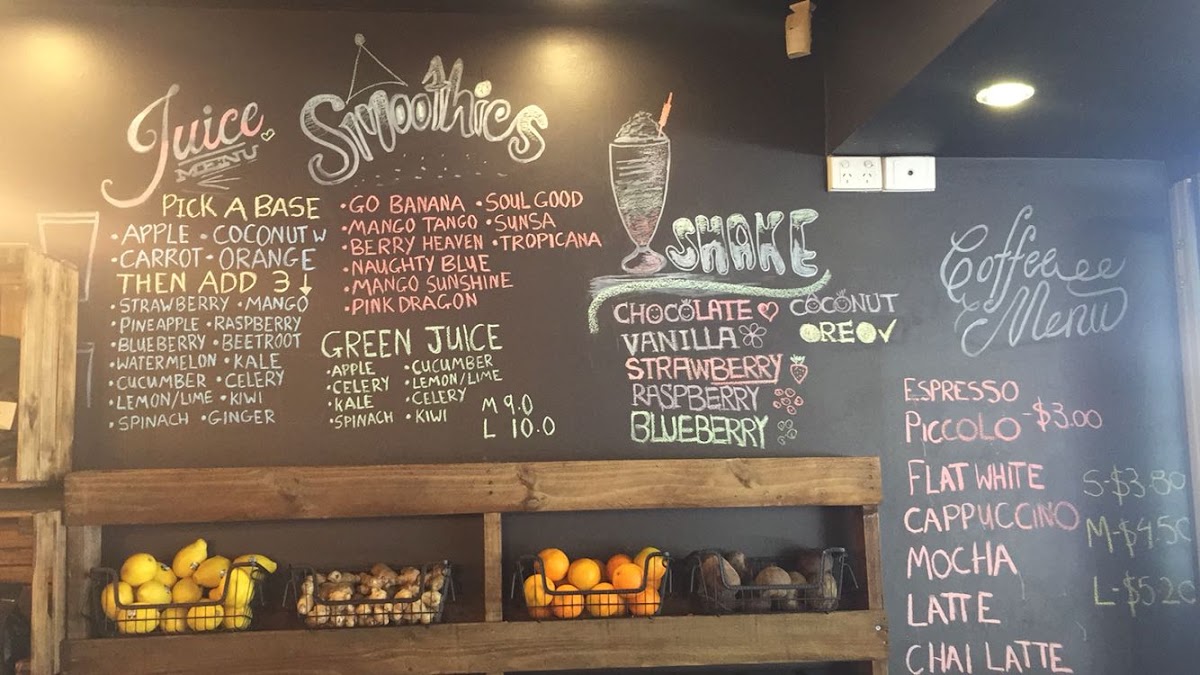 Juice
MENU
PICK A BASE
• APPLE • COCONUT W
• CARROT • ORANGE
THEN ADD 3 ↓
• STRAWBERRY • MANGO
• PINEAPPLE • RASPBERRY
• BLUEBERRY • BEETROOT
• WATERMELON • KALE
• CUCUMBER • CELERY
• LEMON/LIME • KIWI
• SPINACH • GINGER
Smoothies
• GO BANANA • SOUL GOOD
• MANGO TANGO • SUNSA
• BERRY HEAVEN • TROPICANA
• NAUGHTY BLUE
• MANGO SUNSHINE
• PINK DRAGON
GREEN JUICE
• APPLE • CUCUMBER
• CELERY • LEMON/LIME
• KALE • CELERY
• SPINACH • KIWI
M 9.0
L 10.0
SHAKE
CHOCOLATE COCONUT
VANILLA OREO
STRAWBERRY
RASPBERRY
BLUEBERRY
Coffee
Menu
ESPRESSO
PICCOLO -$3.00
FLAT WHITE S-$3.80
CAPPUCCINO M-$4.50
MOCHA L-$5.20
LATTE
CHAI LATTE